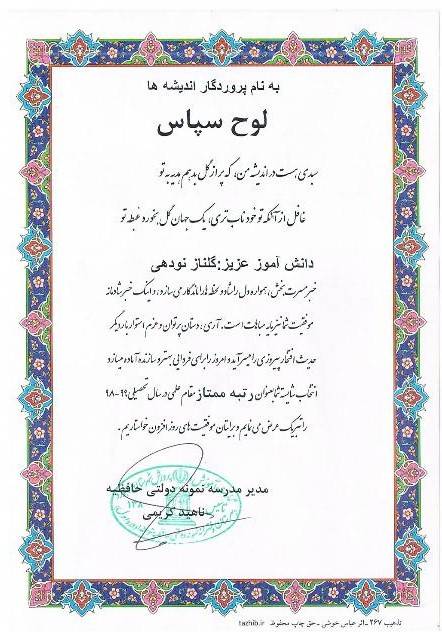 به نام پروردگار اندیشه ها
لوح سپاس
سبدی هست در اندیشه من، که پر از گل بدهم هدیه به تو
غافل از آنکه تو خود ناب تری، یک جهان گل بخورد غبطه به تو
دانش آموز عزیز: گلناز نودهی
خبر مسرت بخش، همواره دل را شاد و لحظه ها را ماندگار می سازد؛ و اینک خبر شادمانه
موفقیت شما نیز مایه مباهات است. آری؛ دستان پرتوان و عزم استوار بار دیگر
حدیث افتخار پیروزی را می سراید و امروز را برای فردایی بهتر و سازنده آماده می سازد
انتخاب شایسته شما بعنوان رتبه ممتاز مقام علمی در سال تحصیلی ۹۹-۹۸
را تبریک عرض می نمایم و برایتان موفقیت های روز افزون خواستاریم.
مدیر مدرسه نمونه دولتی حافظیه
ناهید کریمی
تذهیب ۲۶۷ ـ اثر عباس خوشی ـ حق چاپ محفوظ tazhib.ir